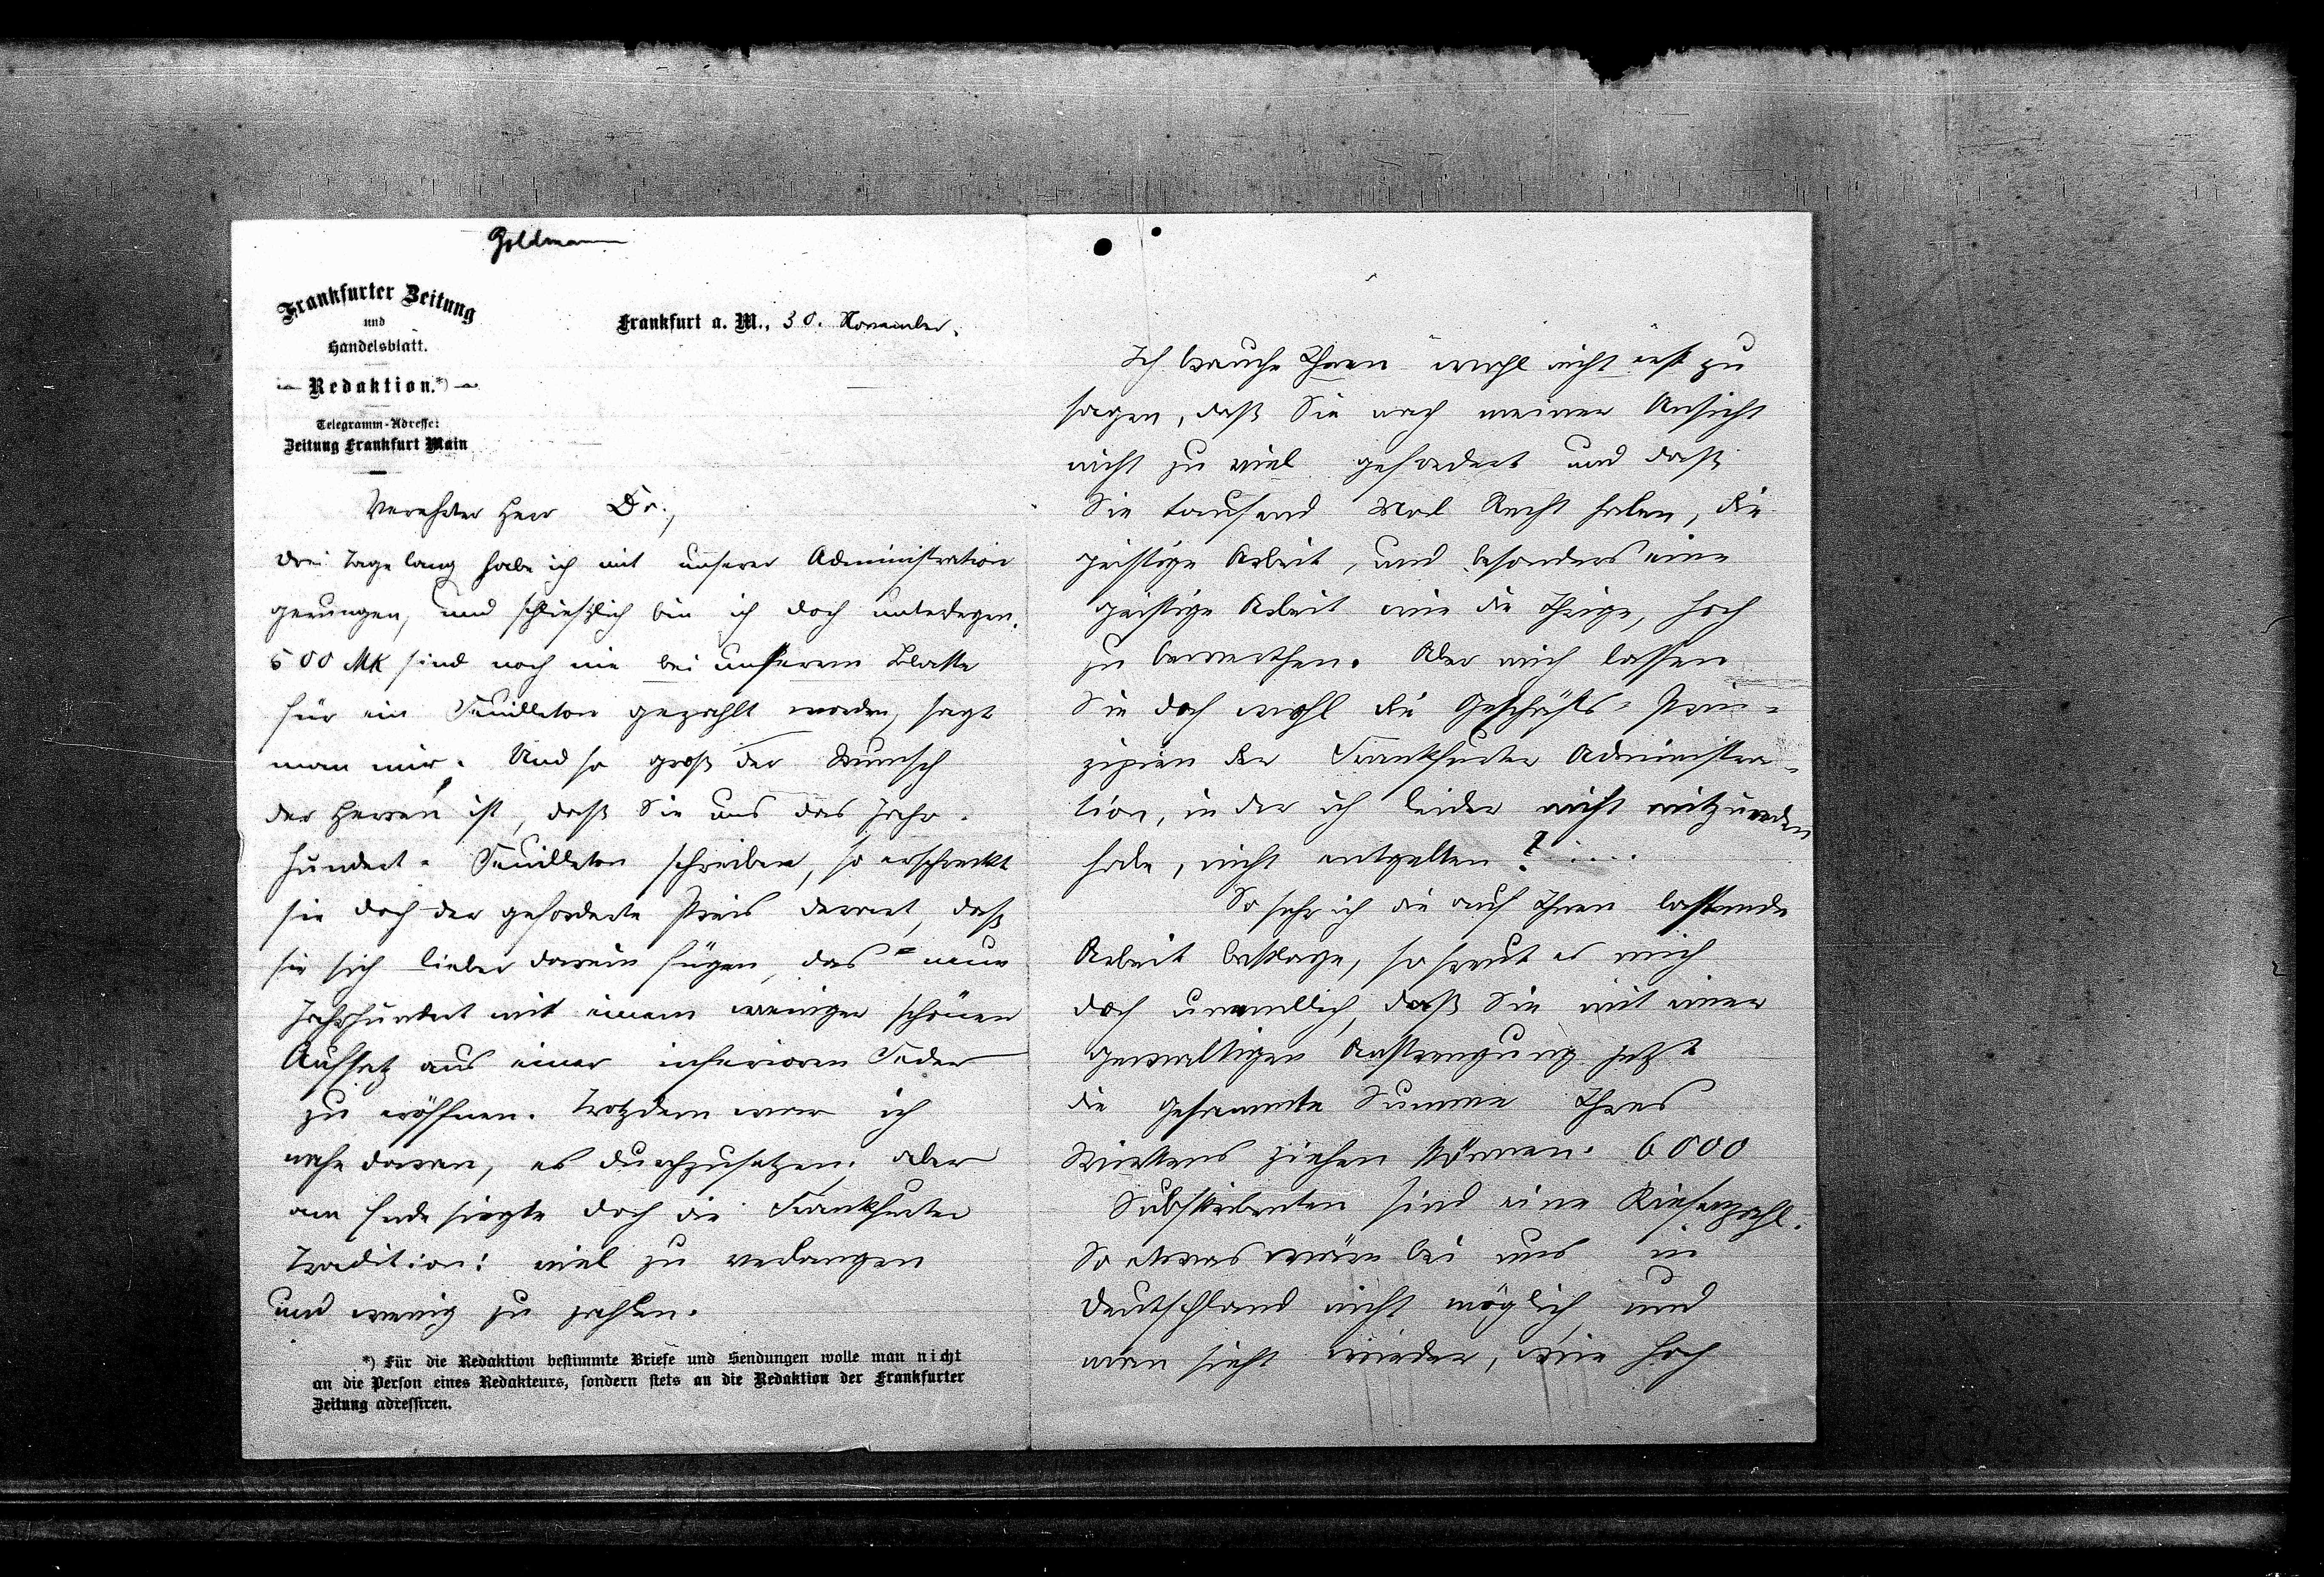 Goldmann
Frankfurter Zeitung
und
Handelsblatt.
Redaktion.*)
Telegramm-Adresse:
Zeitung Frankfurt Main
Frankfurt a. M., 30. November.
Verehrter Herr Dr.,
drei Tage lang habe ich mit unserer Administration
gerungen, und schließlich bin ich doch unterlegen.
500 Mk sind noch nie bei unserem Blatte
für ein Feuilleton gezahlt worden, sagt
man mir. Und so groß der Wunsch
der Herren ist, daß Sie uns das Jahr-
hundert-Feuilleton schreiben, so erschreckt
sie doch der geforderte Preis derart, daß
sie sich lieber darein fügen, das neue
Jahrhundert mit einem weniger schönen
Aufsatz aus einer inferioren Feder
zu eröffnen. Trotzdem war ich
nahe daran, es durchzusetzen; aber
am Ende siegte doch die Frankfurter
Tradition: viel zu verlangen
und wenig zu zahlen.
*) Für die Redaktion bestimmte Briefe und Sendungen wolle man nicht
an die Person eines Redakteurs, sondern stets an die Redaktion der Frankfurter
Zeitung adressiren.
Ich brauche Ihnen wohl nicht erst zu
sagen, daß Sie nach meiner Ansicht
nicht zu viel gefordert und daß
Sie tausend Mal Recht haben, die
geistige Arbeit, und besonders eine
geistige Arbeit wie die Ihrige, hoch
zu bewerthen. Aber mich lassen
Sie doch wohl die Geschäfts-Prin-
zipien der Frankfurter Administra-
tion, in der ich leider nicht mitzureden
habe, nicht entgelten? ....
So sehr ich die auf Ihnen lastende
Arbeit beklage, so freut es mich
doch unendlich, daß Sie mit einer
gewaltigen Anstrengung jetzt
die gesammte Summe Ihres
Wirkens ziehen können. 6000
Subskribenten sind eine Riesenzahl.
So etwas wäre bei uns in
Deutschland nicht möglich, und
man sieht wieder, wie hoch